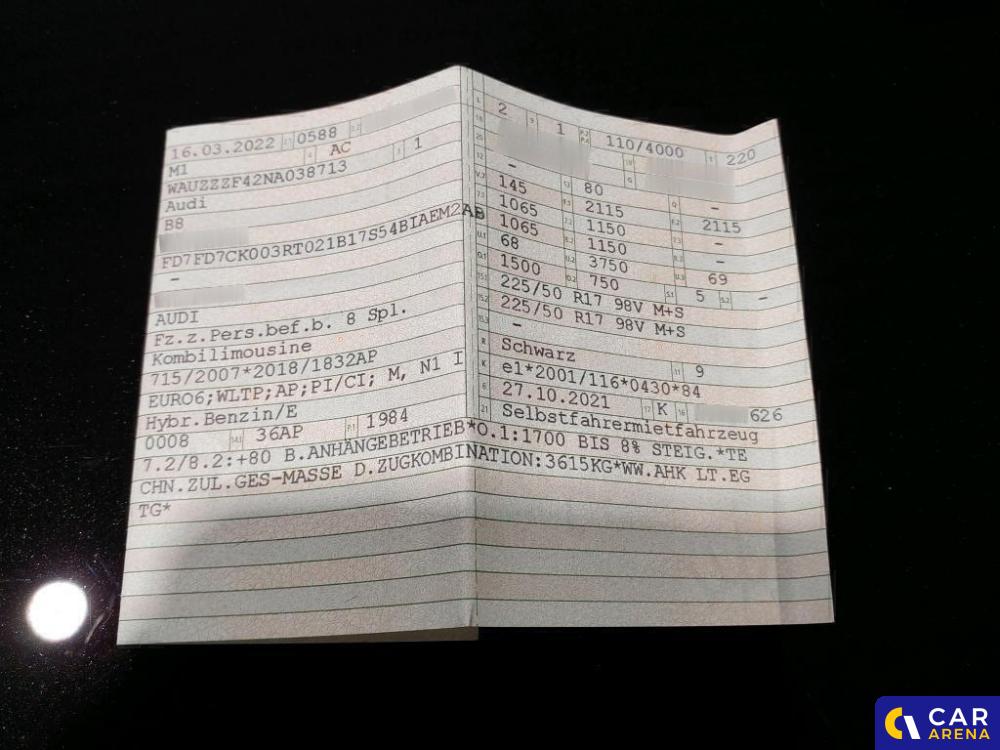 16.03.2022 0588
M1 AC 1
WAUZZZF42NA038713
Audi
B8
FD7FD7CK003RT021B17S54BIAEM2AB
-
AUDI
Fz.z.Pers.bef.b. 8 Spl.
Kombilimousine
715/2007*2018/1832AP
EURO6;WLTP;AP;PI/CI; M, N1 I
Hybr.Benzin/E
0008 36AP 1984
2 1 110/4000 220
-
145 80 -
1065 2115 2115
1065 1150 -
68 1150 -
1500 3750 69
225/50 R17 98V M+S 750 5 -
225/50 R17 98V M+S
-
Schwarz 9
e1*2001/116*0430*84
27.10.2021 K 626
Selbstfahrermietfahrzeug
7.2/8.2:+80 B.ANHÄNGEBETRIEB*O.1:1700 BIS 8% STEIG.*TE
CHN.ZUL.GES-MASSE D.ZUGKOMBINATION:3615KG*WW.AHK LT.EG
TG*
CAR
ARENA